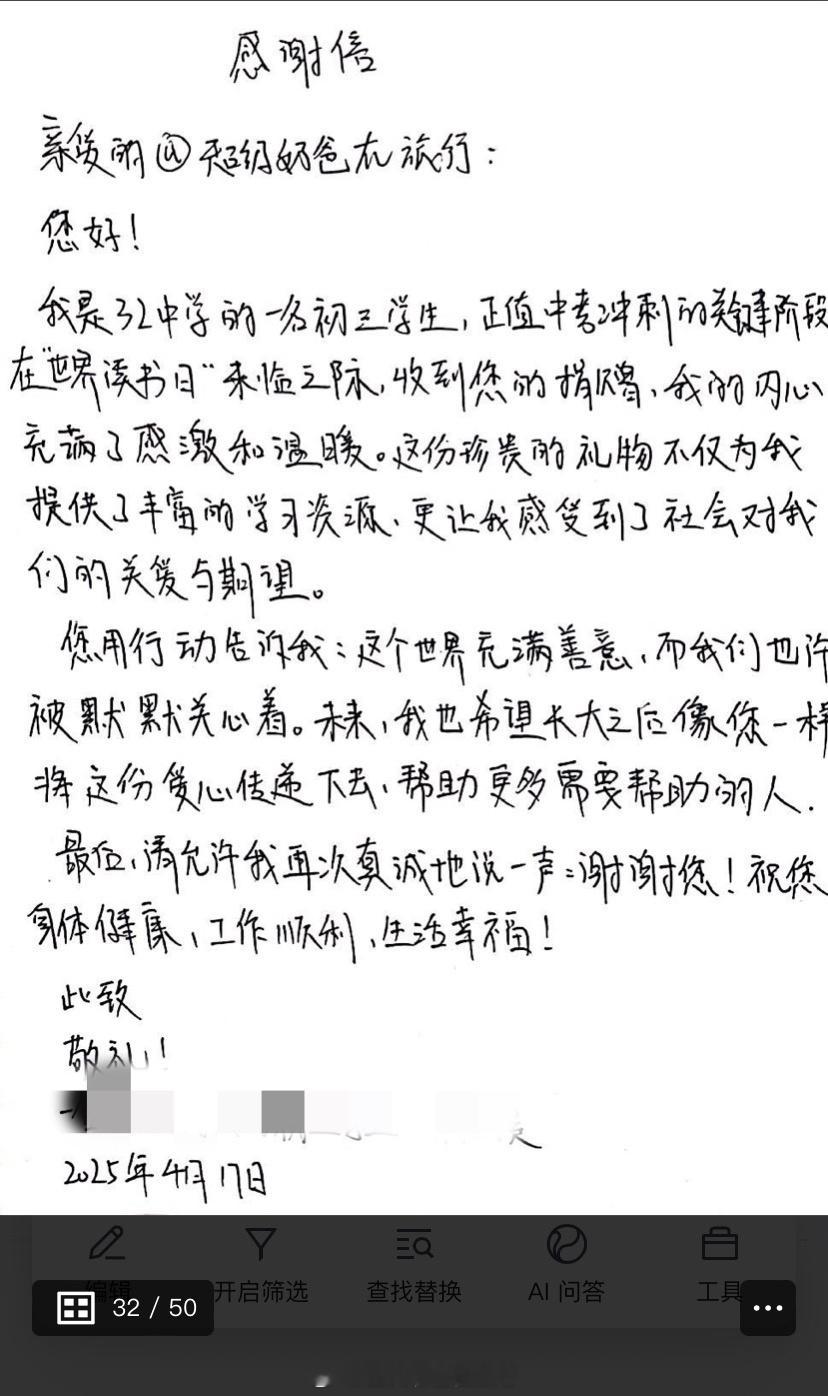 感谢信
亲爱的@超级奶爸在旅行：
您好！
我是32中学的一名初三学生，正值中考冲刺的关键阶段
在“世界读书日”来临之际，收到您的捐赠，我的内心
充满了感激和温暖。这份珍贵的礼物不仅为我
提供了丰富的学习资源，更让我感受到了社会对我
们的关爱与期望。
您用行动告诉我：这个世界充满善意，而我们也许
被默默关心着。未来，我也希望长大之后像您一样
将这份爱心传递下去，帮助更多需要帮助的人.
最后，请允许我再次真诚地说一声：谢谢您！祝您
身体健康，工作顺利，生活幸福！
此致
敬礼！
2025年4月17日
编辑 开启筛选 查找替换 AI 问答 工具
32 / 50